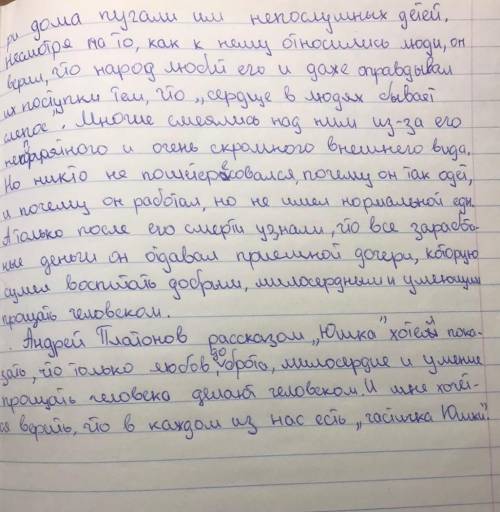 ри дома пугали им непослушных детей.
Несмотря на то, как к нему относились люди, он
верил, что народ любит его и даже оправдывал
их поступки тем, что „сердце в людях бывает
слепое". Многие смеялись над ним из-за его
неопрятного и очень скромного внешнего вида.
Но никто не поинтересовался, почему он так одет,
и почему он работал, но не имел нормальной еды.
А только после его смерти узнали, что все заработан-
ные деньги он отдавал приемной дочери, которую
сумел воспитать добрым, милосердным и умеющим
прощать человеком.
Андрей Платонов рассказом „Юшка" хотел пока-
зать, что только любовь, доброта, милосердие и умение
прощать человека делают человеком. И мне хочет-
ся верить, что в каждом из нас есть „частичка Юшки".